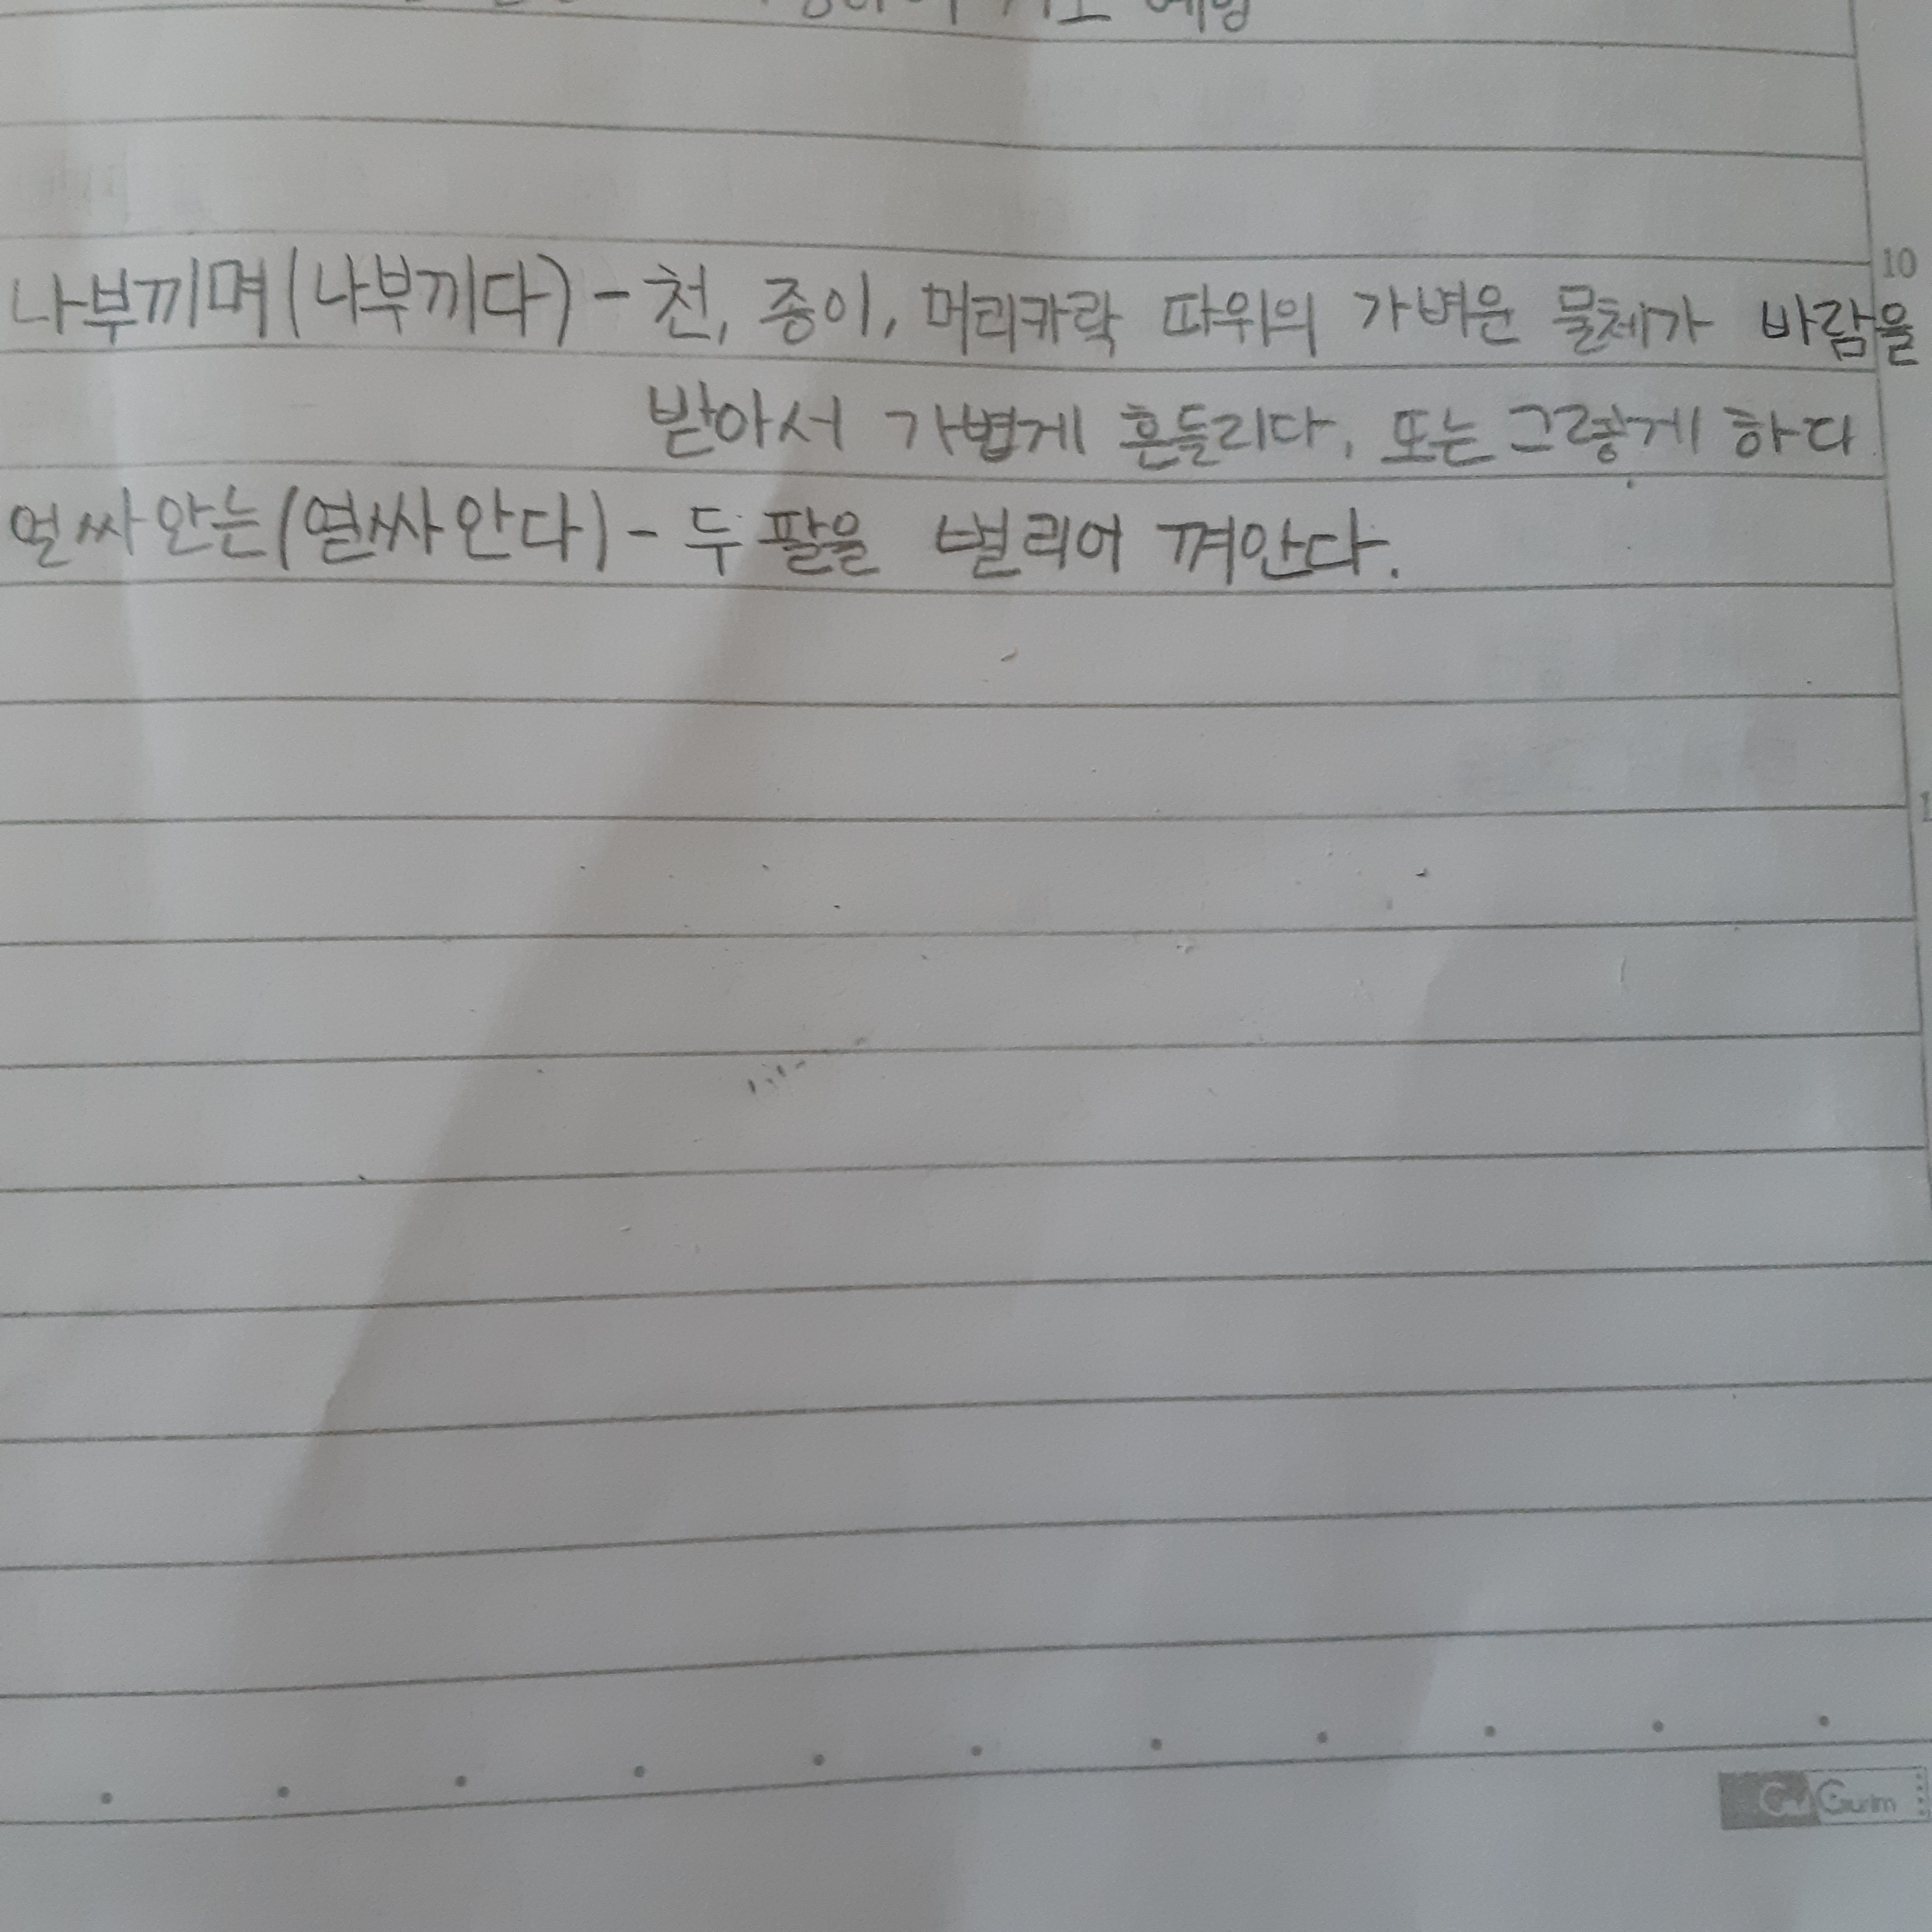 나부끼며(나부끼다) - 천, 종이, 머리카락 따위의 가벼운 물체가 바람을
10
받아서 가볍게 흔들리다, 또는 그렇게 하다
얼싸안는(얼싸안다) - 두 팔을 벌리어 껴안다.
Gurim